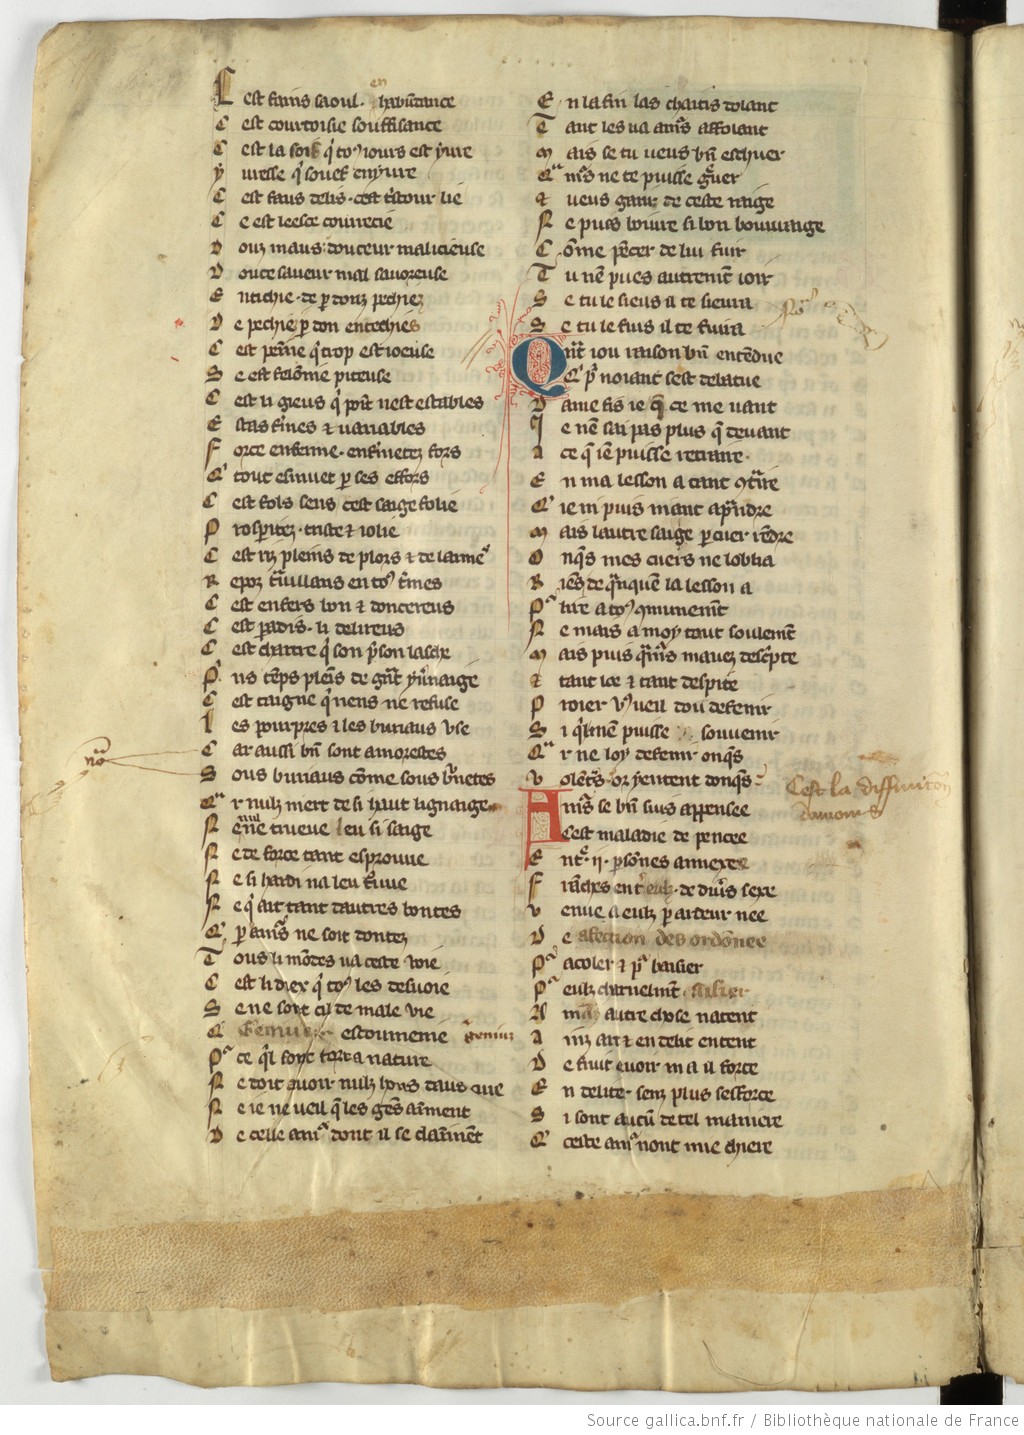 C est fains saoul. en habūdance
C est courtoisie souffisance
C est la soif q̃ toꝰiours est yure
y uresse q̃ souef enyure
C est faus delis. cest tristour lie
C e est leesce courrecie
D ouz maus douceur malicieuse
D ouce saueur mal sauoreuse
E ntichie de p̲donz pechiez
D e pechie p̲don entechies
C est peīne q̃ trop est ioieuse
S e est felōnie piteuse
C est li gieus q̃ poīt nest estables
E stas fines ⁊ variables
F orce enferme. enfermetez fors
Q̉ tout esmuet p̲ ses effors
C est fols sens cest saige folie
P rosp̲itez. triste ⁊ iolie
C est riz pleins de plors ⁊ de larmeˢ
R epoz trauillans en toꝰ tˀmes
C est enfers bon ⁊ doncereus
C est p̲adis. li delireus
C est chartre q̃ son p̉son lasche
P̉ ns tēps pleīs de gnt yu̾naige
C est taigne q̉ riens ne refuse
L es pourpres ⁊ les buriaus vse
C ar aussi bñ sont amoretes
S ous buriaus cōme sous bˀnetes
Qᵃ r nulz niert de si haut lignaige
N e nul ne trueue len si saige
N e de force tant esprouue
N e si hardi na len trˀuue
N e q̉ ait tant dautres bontes
Q̉ p̲ amˀs ne soit dontez
T ous li mōdes va ceste voie
C est li diex q̉ toꝰ les desuoie
S e ne sont cil de male vie
Q̉ Genius escōmenie genius
Pᵃ ce q̉l font tort a nature
N e doit auoir nulz hons daus cure
N e ie ne vueil q̃ les gēs aiment
D e celle amˀ dont il se claīment
E n la fin las chaitis dolant
T ant les va amˀs affolant
M ais se tu veus bñ eschiuer
Qᵃ mˀs ne te puisse gˀuer
⁊ veus garir de ceste raige
N e pues boiure si bon bouuraige
C ōme pēcer de lui fuir
T u nē pues autremēt ioir
S e tu le sieus il te sieura
S e tu le fuis il te fuira
Q nt iou raison bñ entendue
Q̉ pᵃ noiant sest debatue
D ame fis ie q̃ ce me vant
I e nē sai pas plus q̃ deuant
A ce q̃ iē puisse retraire.
E n ma lesson a tant ꝯtˀire
Q̉ ie ni puis niant apˀndre
M ais lautre saige p̲ cuer rēdre
O nqˀs mes cuers ne lobbia
R iēs de qᵃnquen la lesson a
Pᵃ lire a toꝰ ꝯmunemēt
N e mais a moy tout soulemēt
M ais puis q̉mˀs mauez descˀpte
⁊ tant loe ⁊ tant despite
P roier vꝰ vueil dou defenir
S i q̉lmen puisse souuenir
Qᵃ r ne loy defenir onqˀs
V olentˀs. or yentent donqˀs.
A mˀs se bñ suis appensee
A cest maladie de pencee
E ntˀ .ij. p̲sōnes annexee
F rāches entˀ eulz. de diuˀs sexe
V enue a eulz p̲ ardeur nee
D e afection desordōnee
Pᵃ acoler ⁊ pᵃ baisier
Pᵃ eulz charnelmēt aisier
A mās autre chose natent
A inz art ⁊ en delit entent
D e fruit auoir ni a il force
E n delite. senz plus sefforce
S i sont aucū de tel maniere
Q̉ ceste amˀ nont mie chiere
no
noᵃ
Cest la diffinitōn
damours
Source gallica.bnf.fr / Bibliothèque nationale de France